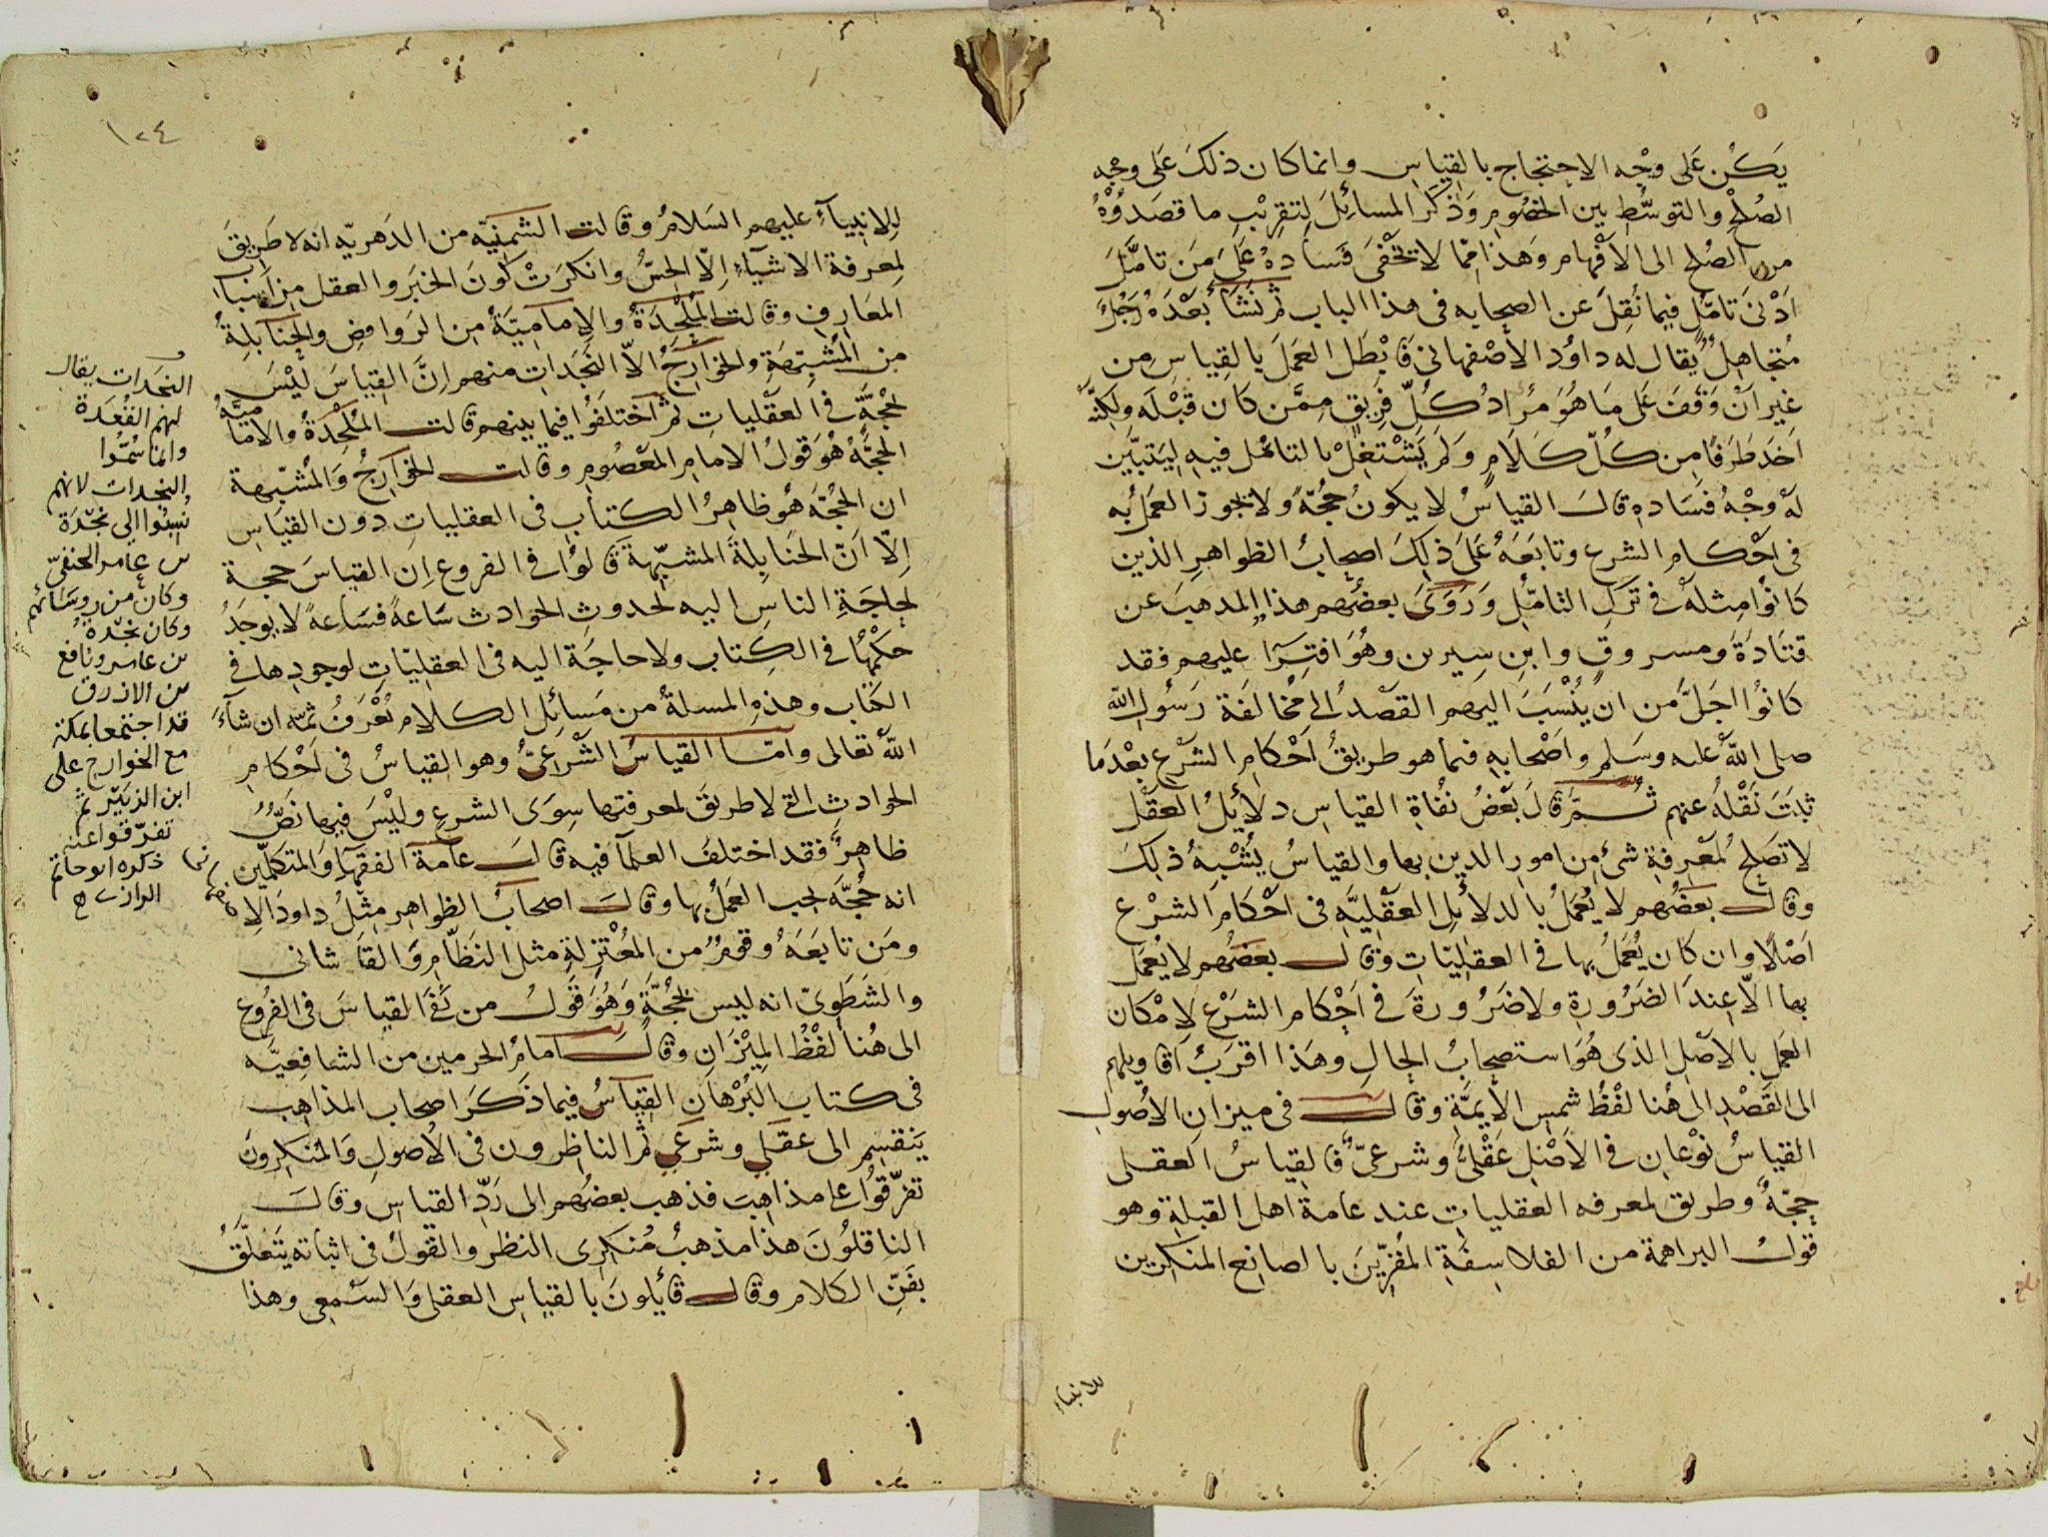 يَكُنْ عَلى وجْه الاحِتجاج بالقِياس وانما كان ذلكَ عَلى وجه
الصُلْح والتوسُّطِ بين الخصُومِ وَذكَر المسائِلَ لِتقريْبِ ما قصَدُوْهُ
من الصُلح الى الأفْهام وَهذا مِمّا لا يَخْفَى فَسادهُ عَلَى مَن تامَّلَ
اَدْنىَ تامّلٍ فيما نُقِلَ عن الصحابه فى هذا الباب ثم نَشَأَ بَعْدَهُ رَجُلٌ
مُتجاهِلٌ يُقال له داوُد الأصْفهانى فَابْطَل العَملَ بالقِياسِ مِن
غَيرِ اَنْ وَقفَ عَلى مَا هُوَ مُرادُ كُلّ فَريقٍ مِمَّن كان قَبْلَه ولكِنَّه
اخَذ طَرَفًا مِن كُلّ كَلَامٍ وَلَم يَشْتغِلْ بالتامُل فيهِ لِيَتبَيَّن
لَهْ وجْهُ فسَاده قالَ القياسُ لا يكونُ حُجّةً ولا يجوز العَمَلُ به
فى احْكام الشرع وتابَعَهُ عَلَىَ ذلِكَ اصحابُ الظواهرِ الذين
كانوُا مثلَهُ فى تَركِ التامُّلِ وَرَوَىَ بعضُهم هذا المذهبَ عن
قتَادَةَ ومسروقٍ وابنِ سِيرين وهُوَ افتِرَا عليهم فقد
كانوُا اجَلَّ من ان يُنْسَبَ اليهم القصْدُ الى مخالفَة رَسُولِ الله
صلى اللهُ عليه وسَلم واصْحابِه فيما هو طريقُ اَحْكام الشرْع بعْدَما
ثبَتَ نَقْلهُ عنهم ثُمّ قالَ بَعْضُ نُفاةِ القياسِ دلايُلُ العَقْل
لا تَصلح لمعْرِفةِ شئ مِن امورِ الدين بها والقياسُ يُشْبهُ ذلِكَ
وقال بعَضُهم لا يُعْمَلُ بالدلائِلِ العَقْلِيَّهِ فى اَحْكامِ الشرْعِ
اصْلًا وان كان يُعْمَلُ بها فى العقلِيّاتِ وقال بعَضُهم لا يُعْمَل
بها الّا عِندَ الضَرُورةِ ولا ضَرُورةَ فى اَحْكام الشَرْعِ لاِمْكان
العَمل بالأصْلِ الذى هُوَ استصحابُ الحالِ وهَذا اقرَبُ اَقاويلهم
الى القَصْدِ الى هُنا لفْظُ شمسِ الأيمَّةِ وقال فى ميزانِ الاُصُولِ
القياسُ نوْعانِ فى الأصْلِ عَقْلىٌّ وشرعىٌّ فالقياسُ العقلى
حجّةٌ وطريق لمعرفه العقلياتِ عند عامةِ اهلِ القبلةِ وهو
قولُ البراهمة من الفلاسِفَةِ المُقِرِّينَ بالصانِعِ المنكِرين
للانبياء
١٢٤
لِلانبِيآءِ عليهم السَلامُ وقالت الشمنيّه من الدَهريّه انه لا طَريقَ
لمِعرفة الاشيآءِ اِلّا الحِسُّ وانكرَتْ كونَ الخبَرِ والعقلِ مِن اَسْبابِ
المعَارِفِ وقالت المُلْحِدَةُ والاِمامِيّةُ مِن الرَوافِضِ والحنَابلةُ
من المُشبِّهَةِ والخوَارِجُ الاّ النَجَداتِ منهم اِنَّ القِياسَ ليْسَ
بحُجّةٍ فى العقْلياتِ ثم اختلَفُوا فيما بينهم قالت المُلْحِدَةُ والاماميّةُ
الحجَّةُ هُوَ قولُ الامامِ المعْصُومِ وقالت الخوَارِجُ وَالمُشبّهة
ان الحُجّة هُو ظاهِرُ الكتابِ فى العقلياتِ دون القياس
اِلّا اَنّ الحَنابِلةَ المشبّهةَ قالوُا فى الفروع اِن القياسَ حجة
لحِاجَةِ الناسِ اليه لحدوثِ الحوادث سَاعةً فسَاعةً لا يوجَدُ
حكمُهَا فى الكِتابِ ولا حاجَةَ اليه فى العقلِيّاتِ لوجودِها فى
الكتاب وهذهِ المسلةُ من مَسائِلِ الكلام تُعْرَفُ ثمّه ان شآءَ
اللهُ تعالى وامّا القياسُ الشرْعىُّ وهو القياسُ فى اَحْكامِ
الحوادثِ التى لا طريقَ لمعرفتها سِوَى الشرعِ وليْسَ فيها نصٌّ
ظاهِرٌ فقد اختلفَ العلمآ فيه قال عامةُ الفقهآءِ وَالمتكلمين
انه حُجّةٌ يجب العَمَلُ بها وقالَ اصحابُ الظواهرِ مِثلُ داودَ الاِصفهانى
ومَن تابعَهُ وقومٌ من المعْتزِلةِ مثل النَظّامِ وَالقاشانى
والشَطَوِىّ انه ليس بحُجّةٍ وَهُوَ قولُ من نَفَى القياسَ فى الفُروع
الى هُنا لفْظُ المِيْزَانِ وقال امامُ الحرمين من الشافِعيّه
فى كتاب البُرْهانِ القِياسُ فيما ذَكَرَ اصحاب المذاهِبِ
يَنقسِم الى عقلي وشرعي ثم الناظِرون فى الأُصولِ وَالمُنكِرونَ
تفرّقوُا على مذاهِبَ فذهب بعضُهم الى رَدِّ القياسِ وقالَ
الناقلُونَ هذا مذهبُ مُنكِرِى النظر والقَولُ فى اثباته يَتعلّقُ
بفَنِّ الكلام وقال قائِلونَ بالقياسِ العقلى وَالسَمعى وهذا
النجَدات يقال
لهم القَعَدة
وانما سُمّوا
النجدات لانهم
نُسِبُوا الى نَجْدَة
بن عامر الحنفىّ
وكان من روسَائهم
وكان نجْدة
بن عامر ونافع
بن الازرق
قد اجتمعا بمكة
مع الخوارج على
ابن الزبَيْر ثم
تفرّقوا عنه
ذكره ابو حاتم
الرازى